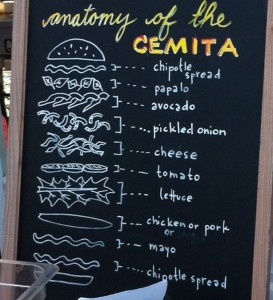 anatomy of the
CEMITA
chipotle spread
papalo
avocado
pickled onion
cheese
tomato
lettuce
chicken or pork
or
mayo
chipotle spread